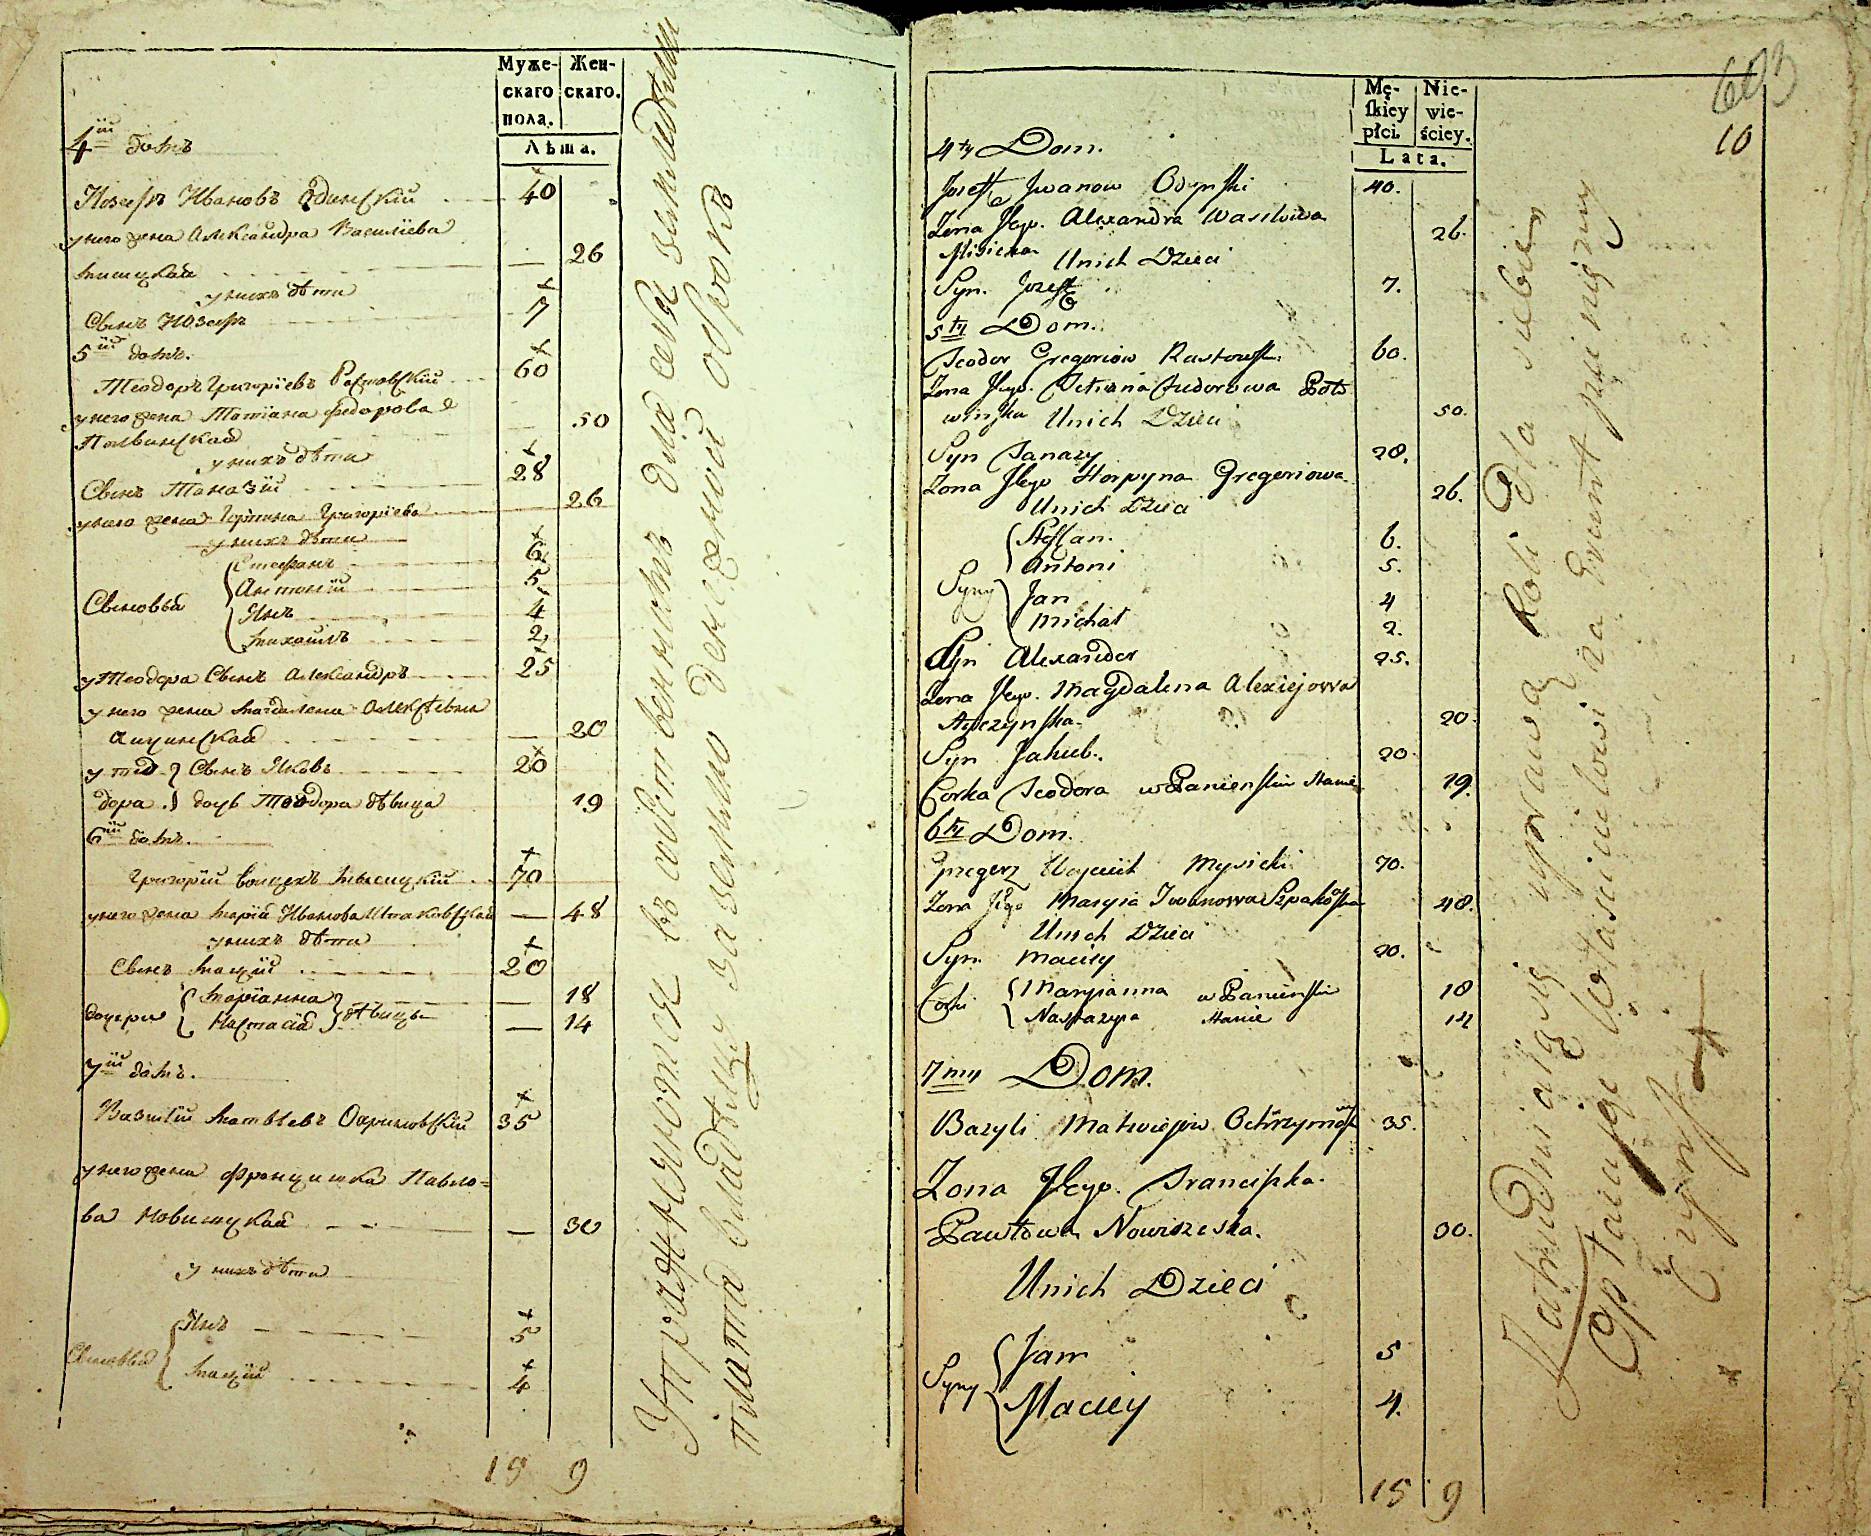 Муже-
скаго
пола.
Жен-
скаго.
Лѣта.
4ій домъ
Іозефъ Ивановъ Одинскій 40
у него жена Александра Василіева
Мисицкая — 26
у нихъ дѣти
Сынъ Іозефъ 7
5ій домъ.
Теодоръ Григоріевъ Ростовскій 60
у него жена Татіана Федорова
Потвинская — 50
у нихъ дѣти
Сынъ Таназій 28
у него жена Горпина Григоріева 26
у нихъ дѣти
Сыновья
Стефанъ 6
Антоній 5
Янъ 4
Михаилъ 2
у Теодора Сынъ Александръ 25
у него жена Магдалена Алексѣева
— 20
у Тео-
дора
Сынъ Яковъ 20
дочь Теодора дѣвица 19
6ій домъ.
Григорій Войцехъ Мысицкій 70
у него жена Марія Иванова Шпаковская — 48
у нихъ дѣти
Сынъ Мацій 20
дочери
Маріанна — 18
Настасія — 14
дѣвицы
7ій домъ.
Василій Матвѣевъ Охримовскій 35
у него жена Францишка Павло=
ва Новицкая — 30
у нихъ дѣти
Сыновья
Янъ 5
Мацій 4
19 9
Упражняются въ собственномъ для себя земледѣлии
платя владѣлцу за землю денежной оброкъ
603
10
Mę-
skiey
płci.
Nie-
wie-
ściey.
Lata.
4ty Dom.
Jozeff Jwanow Odynski 40.
Zona Jego. Alexandra Wasilwiewa
Misicka 26.
Unich Dzieci
Syn. Jozeff 7.
5ty Dom.
Teodor Gregoriow Rastowsk. 60.
Zona Jego. Tetiana Fudorowa Poto
winska 50.
Unich Dzieci
Syn Tanazy 28.
Zona Jego Horpyna Gregoriowa 26.
Unich Dzieci
Syny
Steffan. 6.
Antoni 5.
Jan 4
Michał 2.
Syn Alexander 25.
Zona Jego. Magdalena Alexiejowa
20.
Syn Jakub. 20
Corka Teodora w Panienskim Stanie 19.
6ty Dom.
Grzegorz Woyciech Mysicki 70.
Zona Jego Maryia Jwanowa Szpakoska 48.
Unich Dzieci
Syn. Maciey 20.
Corki
Maryianna 18
Nastazyia 14
w Panienskim
Stanie
7my Dom.
Bazyli Matwiejow Ochrzymows 35.
Zona Jego. Franciszka.
Pawłowa Nowiszcska. 30.
Unich Dzieci
Syny
Jan 5
Maciey 4.
19 9
Zatrudniaią się uprawą Roli dla siebie
Opłacaiąc Właścicielowi za Grunt pieniężny
Czynsz